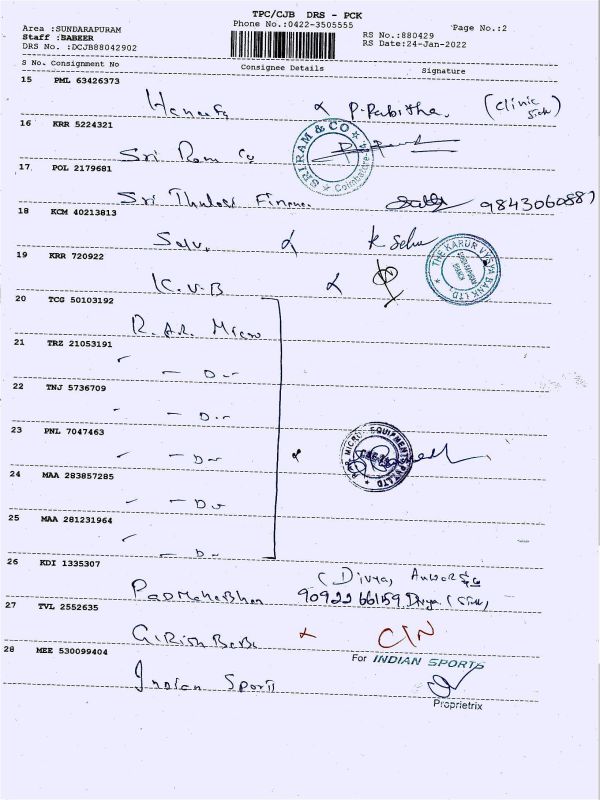 TPC/CJB DRS - PCK
Area :SUNDARAPURAM Phone No.:0422-3505555 Page No.:2
Staff :BABEER RS No.:880429
DRS No. :DCJB88042902 RS Date:24-Jan-2022
S No. Consignment No Consignee Details Signature
15 PML 63426373
P. Pabitha. (Clinic
16 KRR 5224321
Sri Ram Co SRI RAM & CO Coimbatore
17 POL 2179681
Sri Thulasi Finance
18 KCM 40213813
Selvi K Selvi
19 KRR 720922
K.V.B THE KARUR VYSYA BANK LTD.
20 TCG 50103192
R.A.R. Micro
21 TRZ 21053191
— Do —
22 TNJ 5736709
— Do —
23 PNL 7047463
— Do — MICRO EQUIPMENTS PVT LTD
24 MAA 283857285
— Do
25 MAA 281231964
— Do —
26 KDI 1335307
(Divya,
Padmanabhan 9092266159. Divya
27 TVL 2552635
Girish Babu
28 MEE 530099404 For INDIAN SPORTS
Indian Sports
Proprietrix